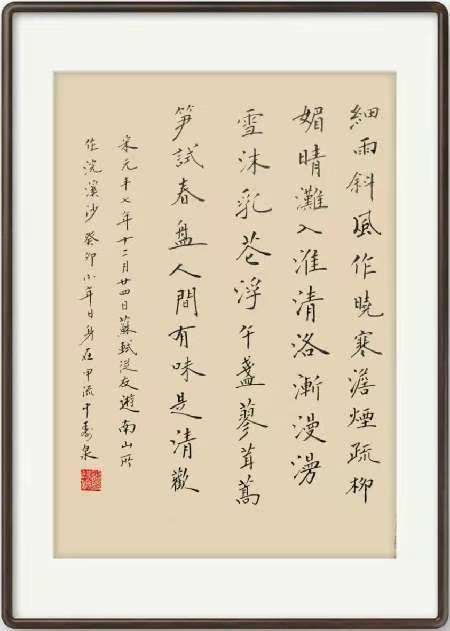 細雨斜風作曉寒澹煙疏柳
媚晴灘入淮清洛漸漫漫
雪沫乳花浮午盞蓼茸蒿
笋試春盤人間有味是清歡
宋元丰七年十二月廿四日蘇軾從友遊南山所
作浣溪沙癸卯小年日身在甲流中壽泉